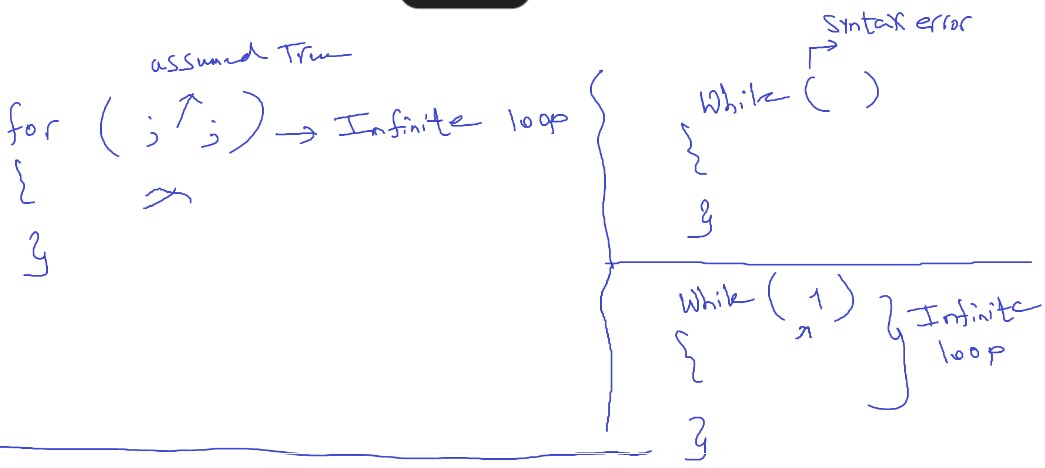 assumed True
for ( ; ; ) → Infinite loop
{
}
Syntax error
While ( )
{
}
While ( 1 )
{
}
} Infinite
loop